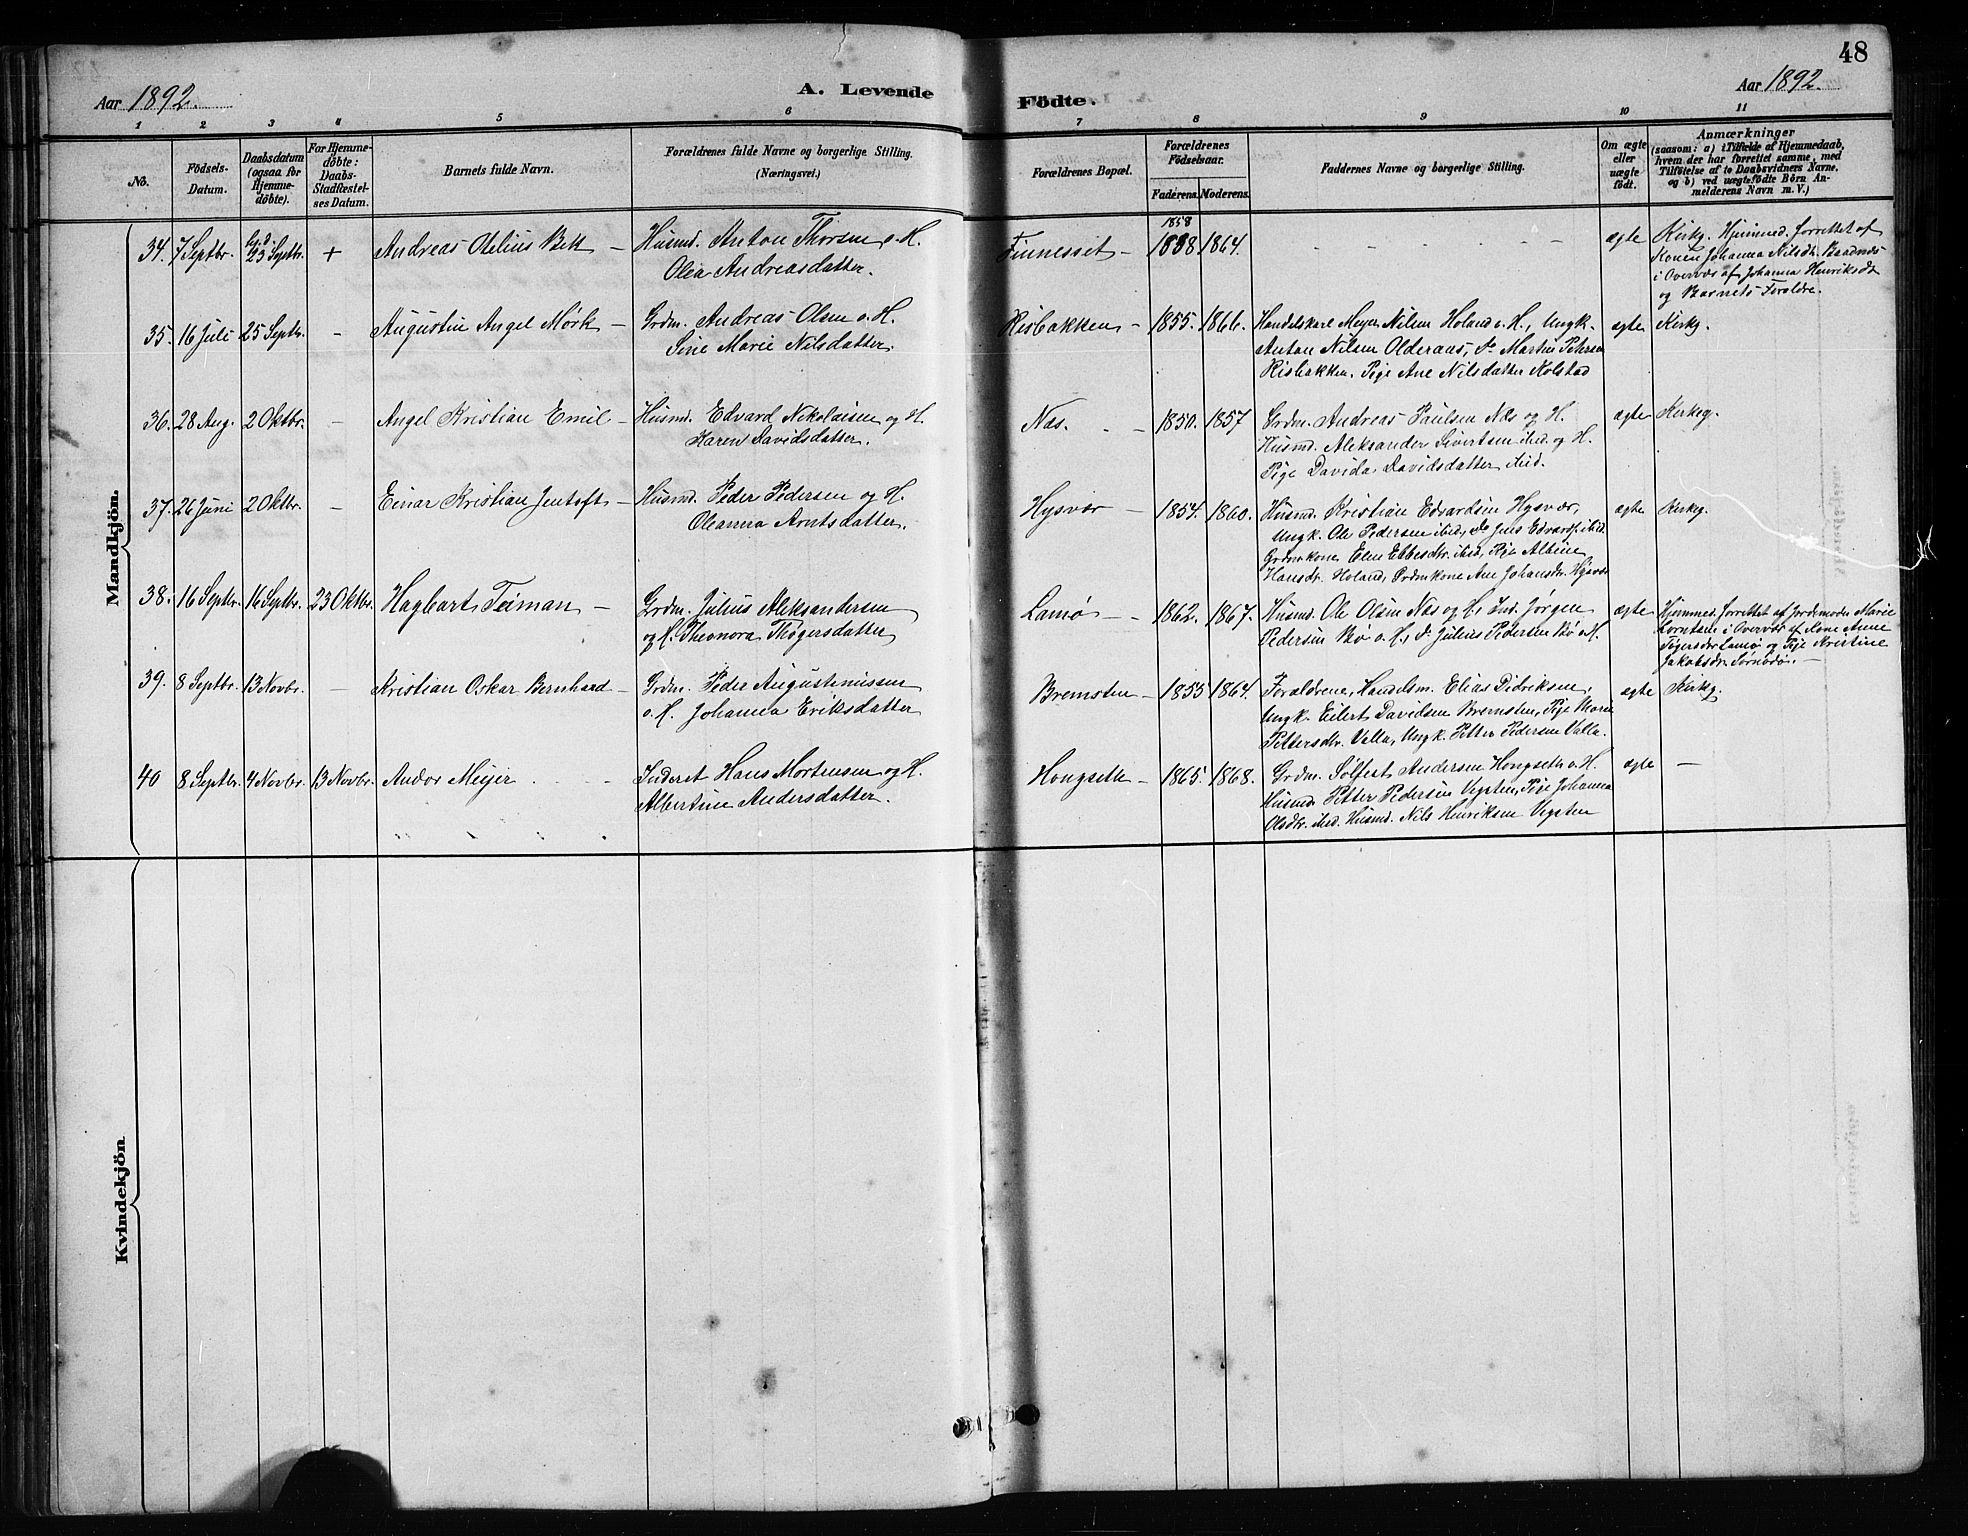 48
Aar 1892.
A. Levende
Födte.
Aar 1892.
1 2 3 4 5 6 7 8 9 10 11
No.
Födsels-
Datum.
Daabsdatum
(ogsaa for
Hjemme-
døbte).
For Hjemme-
døbte:
Daabs-
Stadfæstel-
ses Datum.
Barnets fulde Navn.
Forældrenes fulde Navne og borgerlige Stilling.
(Næringsvei.)
Forældrenes Bopæl.
Forældrenes
Födselsaar.
Faderens. Moderens.
Faddernes Navne og borgerlige Stilling.
Om ægte
eller
uægte
født.
Anmærkninger
(saasom: a) i Tilfælde af Hjemmedaab,
hvem der har forrettet samme, med
Tilföielse af to Daabsvidners Navne,
og b) ved uægte fødte Börn An-
melderens Navn m. V.)
Mandkjön.
34. 7 Septbr. 23 Septr. + Andreas Otelius Bek — Husmd. Anton Thoresen o. H.
Olea Andreasdatter.
Finnesset — 1858 1888 1864. ægte
Kirkg. Hjemmed. forrettet af
Konen Johanna Nilsdr. Baadnes
i Overvær af Johanna Henriksdr
og Barnets Forældre.
35. 16 Juli 25 Septr. - Augustin Angel Mørk — Grdm. Andreas Olsen o. H.
Sine Marie Nilsdatter.
Risbakken — 1855. 1866. Handelskarl Meyer Nilsen Holand o. H., Ungk.
Anton Nilsen Olderaas, do Martin Petersen
Risbakken. Pige Ane Nilsdatter Kolstad
ægte Kirkg.
36. 28 Aug. 2 Oktbr. - Angel Kristian Emil — Husmd. Edvard Nikolaisen og H.
Karen Davidsdatter.
Næs. - - 1850. 1857 Grdm. Andreas Paulsen Næs og H.
Husmd. Aleksander Sivertsen ibid. og H.
Pige Davida Davidsdatter ibid.
ægte Kirkeg.
37. 26 Juni 2 Oktbr. - Einar Kristian Jentoft — Husmd. Peder Pedersen og H.
Oleanna Arntsdatter.
Hysvær — 1854. 1860. Husmd. Kristian Edvardsen Hysvær,
Ungk. Ole Pedersen ibid, do Jens Edvards. ibid.
Grdmkone Elen Ebbesdr. ibid, Pige Albine
Hansdr. Holand, Grdmkone Ane Johansdr. Hysvær
ægte Kirkg.
38. 16 Septbr. 16 Septbr. 23 Oktbr. Hagbart Teiman — Grdm. Julius Aleksandersen
og H. Theonora Thøgersdatter
Lamø — 1862. 1867. Husmd. Ole Olsen Næs og H., Ind. Jørgen
Pedersen Bø o. H., do Julius Pedersen Bø o. H.
ægte Hjemmed. forrettet af Jordemoder Marie
Lorntsen i Overvær af Kone Anne
Tøgersdr. Lamø og Pige Kristine
Jakobsdr.
39. 8 Septbr. 13 Novbr. - Kristian Oskar Bernhard — Grdm. Peder Augustinussen
o. H. Johanna Eriksdatter
Bremsten — 1855 1864. Forældrene, Handelsm. Elias Didriksen,
Ungk. Eilert Davidsen Bremsten, Pige Marie
Pettersdr. Valla, Ungk. Petter Pedersen Valla.
ægte Kirkg.
40 8 Septbr. 4 Novbr. 13 Novbr. Andor Meyer - - Inderst Hans Mortensen og H.
Albertine Andersdatter.
Hongseth — 1865. 1868. Grdm. Solfest Andersen Hongseth o. H.
Husmd. Petter Pedersen Vegsten, Pige Johanna
Olsdr. ibid. Husmd. Nils Henriksen Vegsten
ægte —
Kvindekjön.